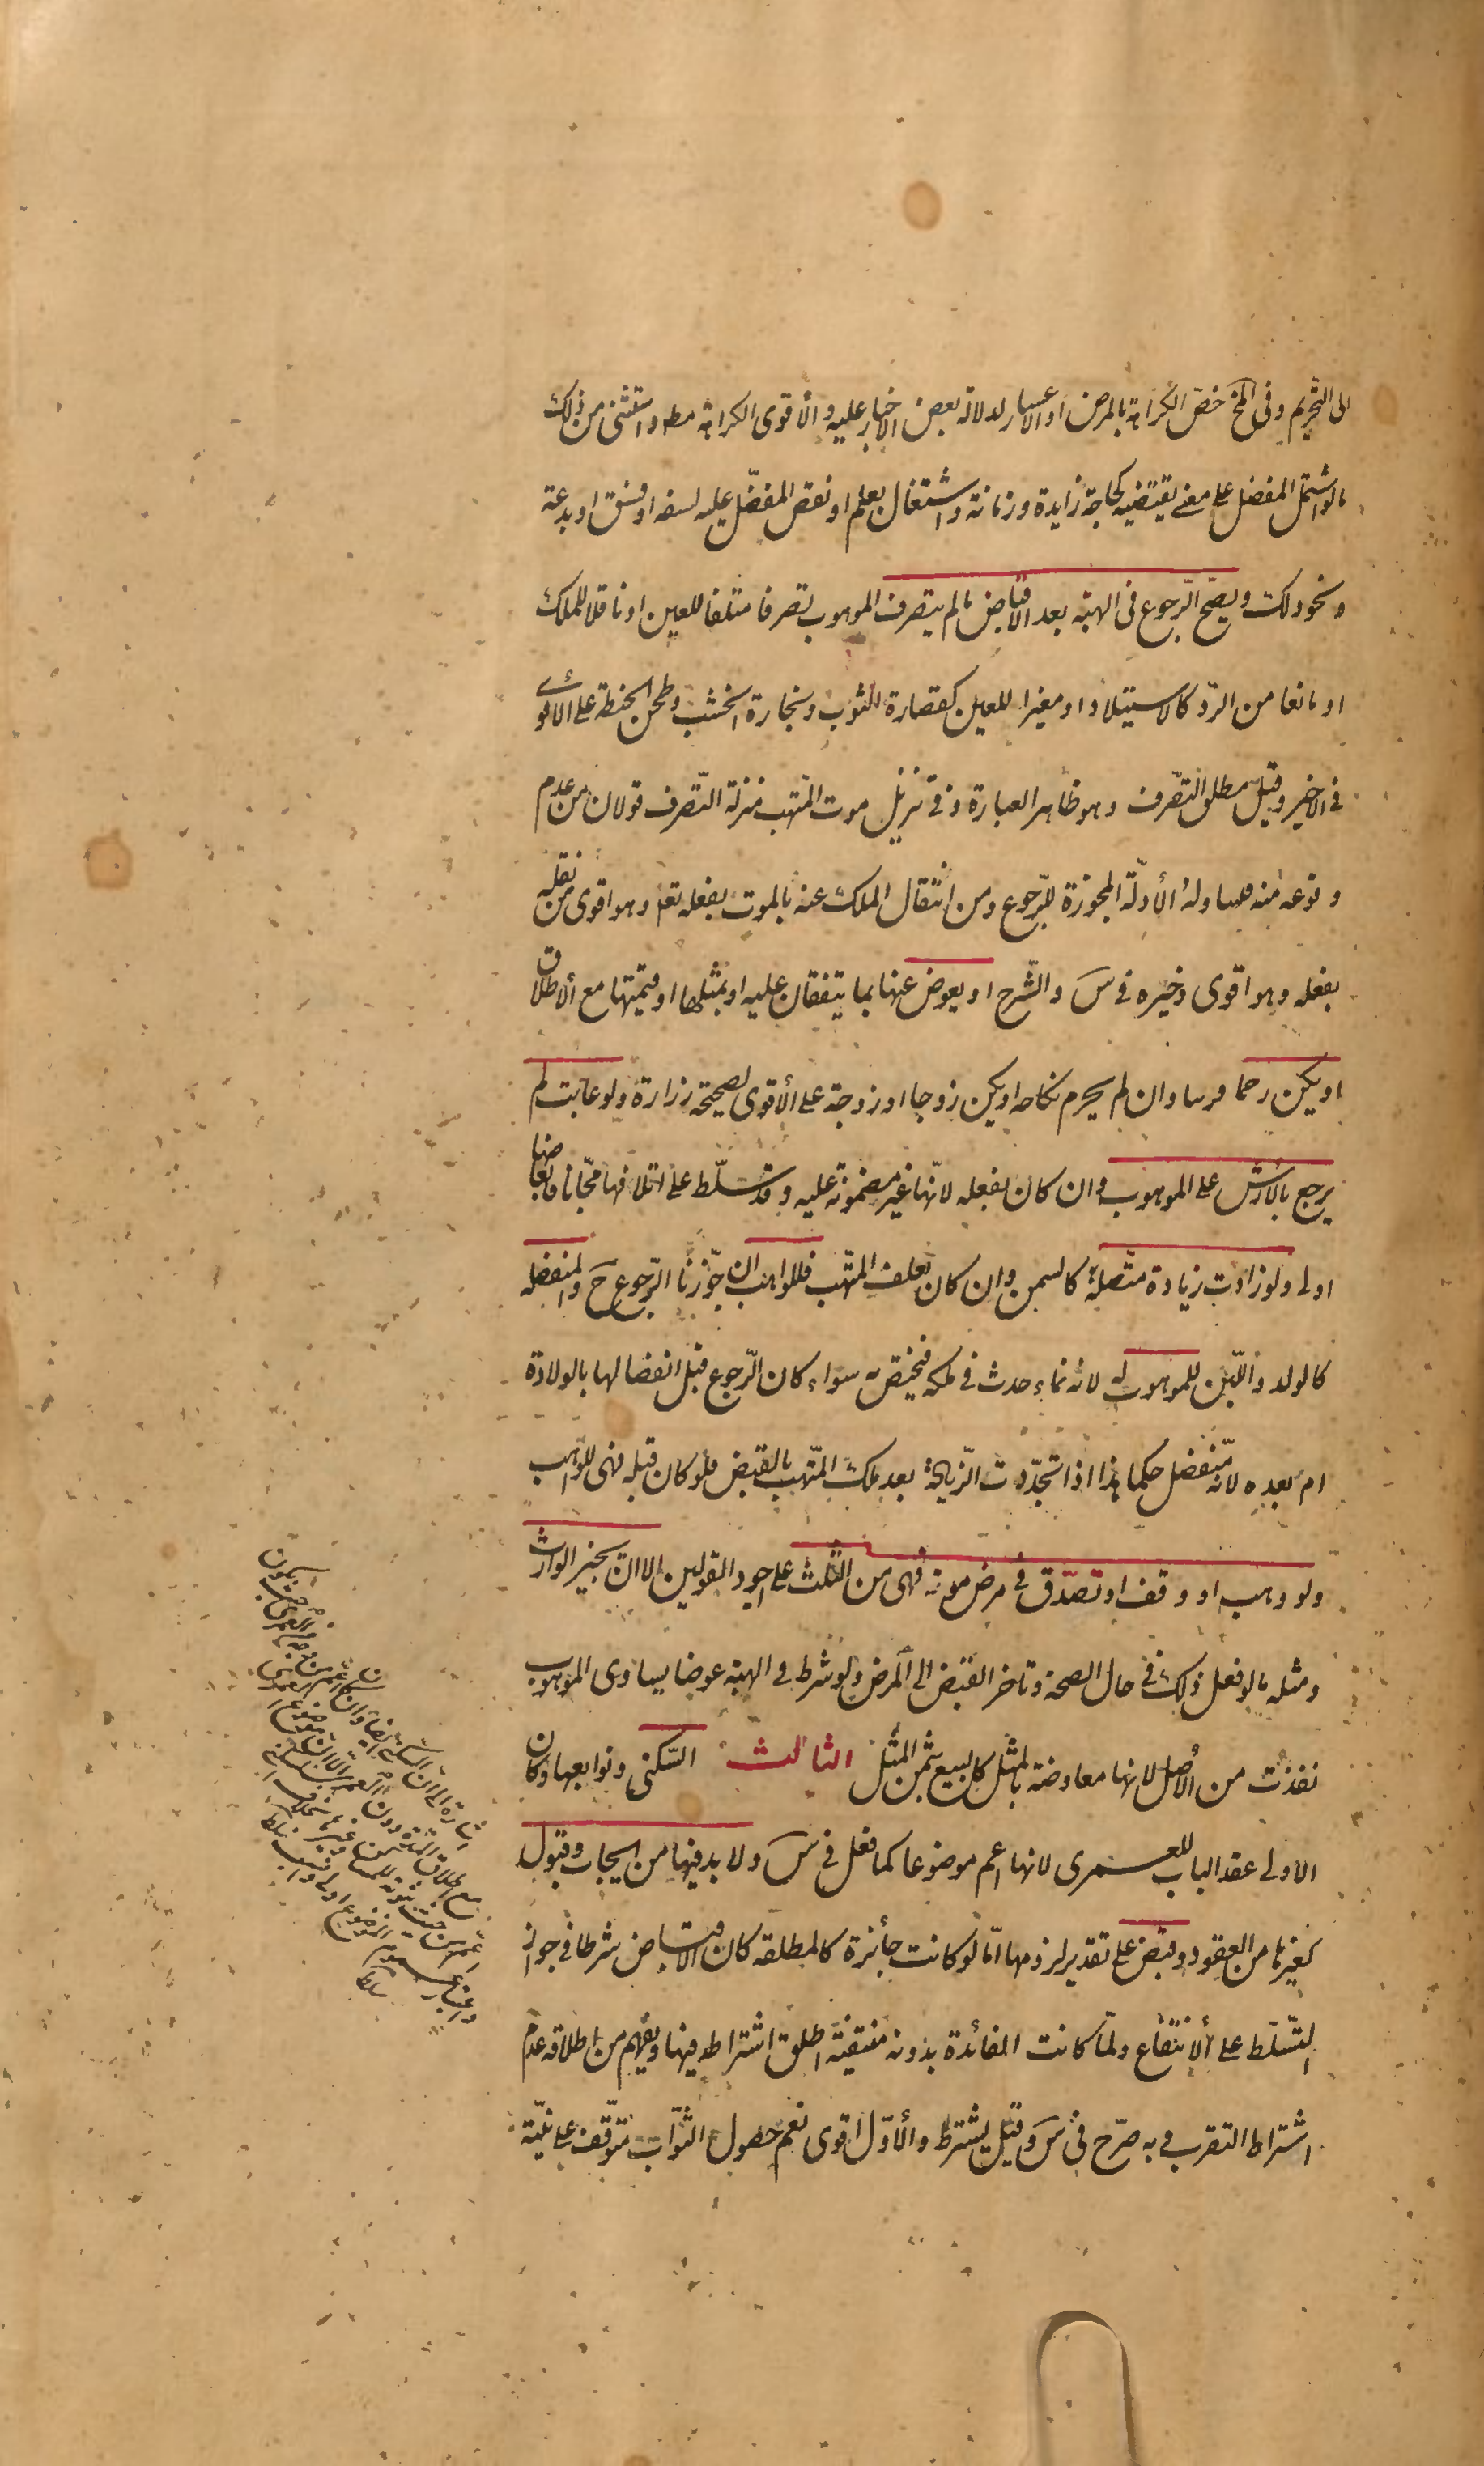 الى التحريم وفى المخ خصّ الكراهة بالمرض او الاعسار لدلالة بعض الاخبار عليه والأقوى الكراهة مطه واستثنى من ذلك
مالو اشتمل المفضل على معنى يقتضيه كحاجة زايدة وزمانة واشتغال بعلم او نقص المفضّل عليه لسفه او فسق او بدعة
ونحو ذلك ويصحّ الرّجوع فى الهبة بعد الاقباض مالم يتصرف الموهوب تصرفا متلفا للعين او ناقلا للملك
او مانعا من الردّ كالاستيلاد او مغيرا للعين كقصارة الثوب ونجارة الخشب وطحن الحنطة على الاقوى
فى الاخير وقيل مطلق التصّرف وهو ظاهر العبارة وفى تنزيل موت المتهب منزلة التّصرف قولان من عدم
وقوعه منه فيتناوله الأدلّة المجوزة للرّجوع ومن انتقال الملك عنه بالموت بفعله تعه وهو اقوى من نقله
بفعله وهو اقوى وخيره فى س والشّرح او يعوض عنها بما يتفقان عليه او بمثلها او قيمتها مع الاطلاق
او يكن رحما قريبا وان لم يحرم نكاحه او يكن زوجا او زوجة على الأقوى لصحيحة زرارة ولو عابت لم
يرجع بالارش على الموهوب وان كان بفعله لانّها غير مضمونة عليه وقد سلّطه على اتلافها مجّانا فابعاضها
اولى ولو زادت زيادة متّصلة كالسمن وان كان بعلف المتّهب فللواهب ان جوّزنا الرّجوع ح والمنفصلة
كالولد واللّبن للموهوب له لانه نماء حدث فى ملكه فيختص به سواء كان الرّجوع قبل انفصالها بالولادة
ام بعده لانّه منفصل حكما هذا اذا تجدّدت الزّيادة بعد ملك المتّهب بالقبض فلو كان قبله فهى للواهب
ولو وهب او وقف او تصدّق فى مرض موته فهى من الثّلث على اجود القولين الا ان يجيز الوارث
ومثله مالو فعل ذلك فى حال الصحة وتاخر القبض الى المرض ولو شرط فى الهبة عوضا يساوى الموهوب
نفذت من الأصل لانها معاوضة بالمثل كالبيع بثمن المثل الثالث السّكنى وتوابعها وكان
الاولى عقد الباب للعمرى لانها اعم موضوعا كما فعل فى س ولا بد فيها من ايجاب وقبول
كغيرها من العقود وقبض على تقدير لزومها امّا لو كانت جائزة كالمطلقة كان الاقباض شرطا فى جواز
التّسلّط على الانتفاع ولمّا كانت الفائدة بدونه منتفية اطلق اشتراطه فيها ويفهم من اطلاقه عدم
اشتراط التقرب وبه صرّح فى س وقيل يشترط والأوّل اقوى نعم حصول الثّواب متوّقف على نيّته